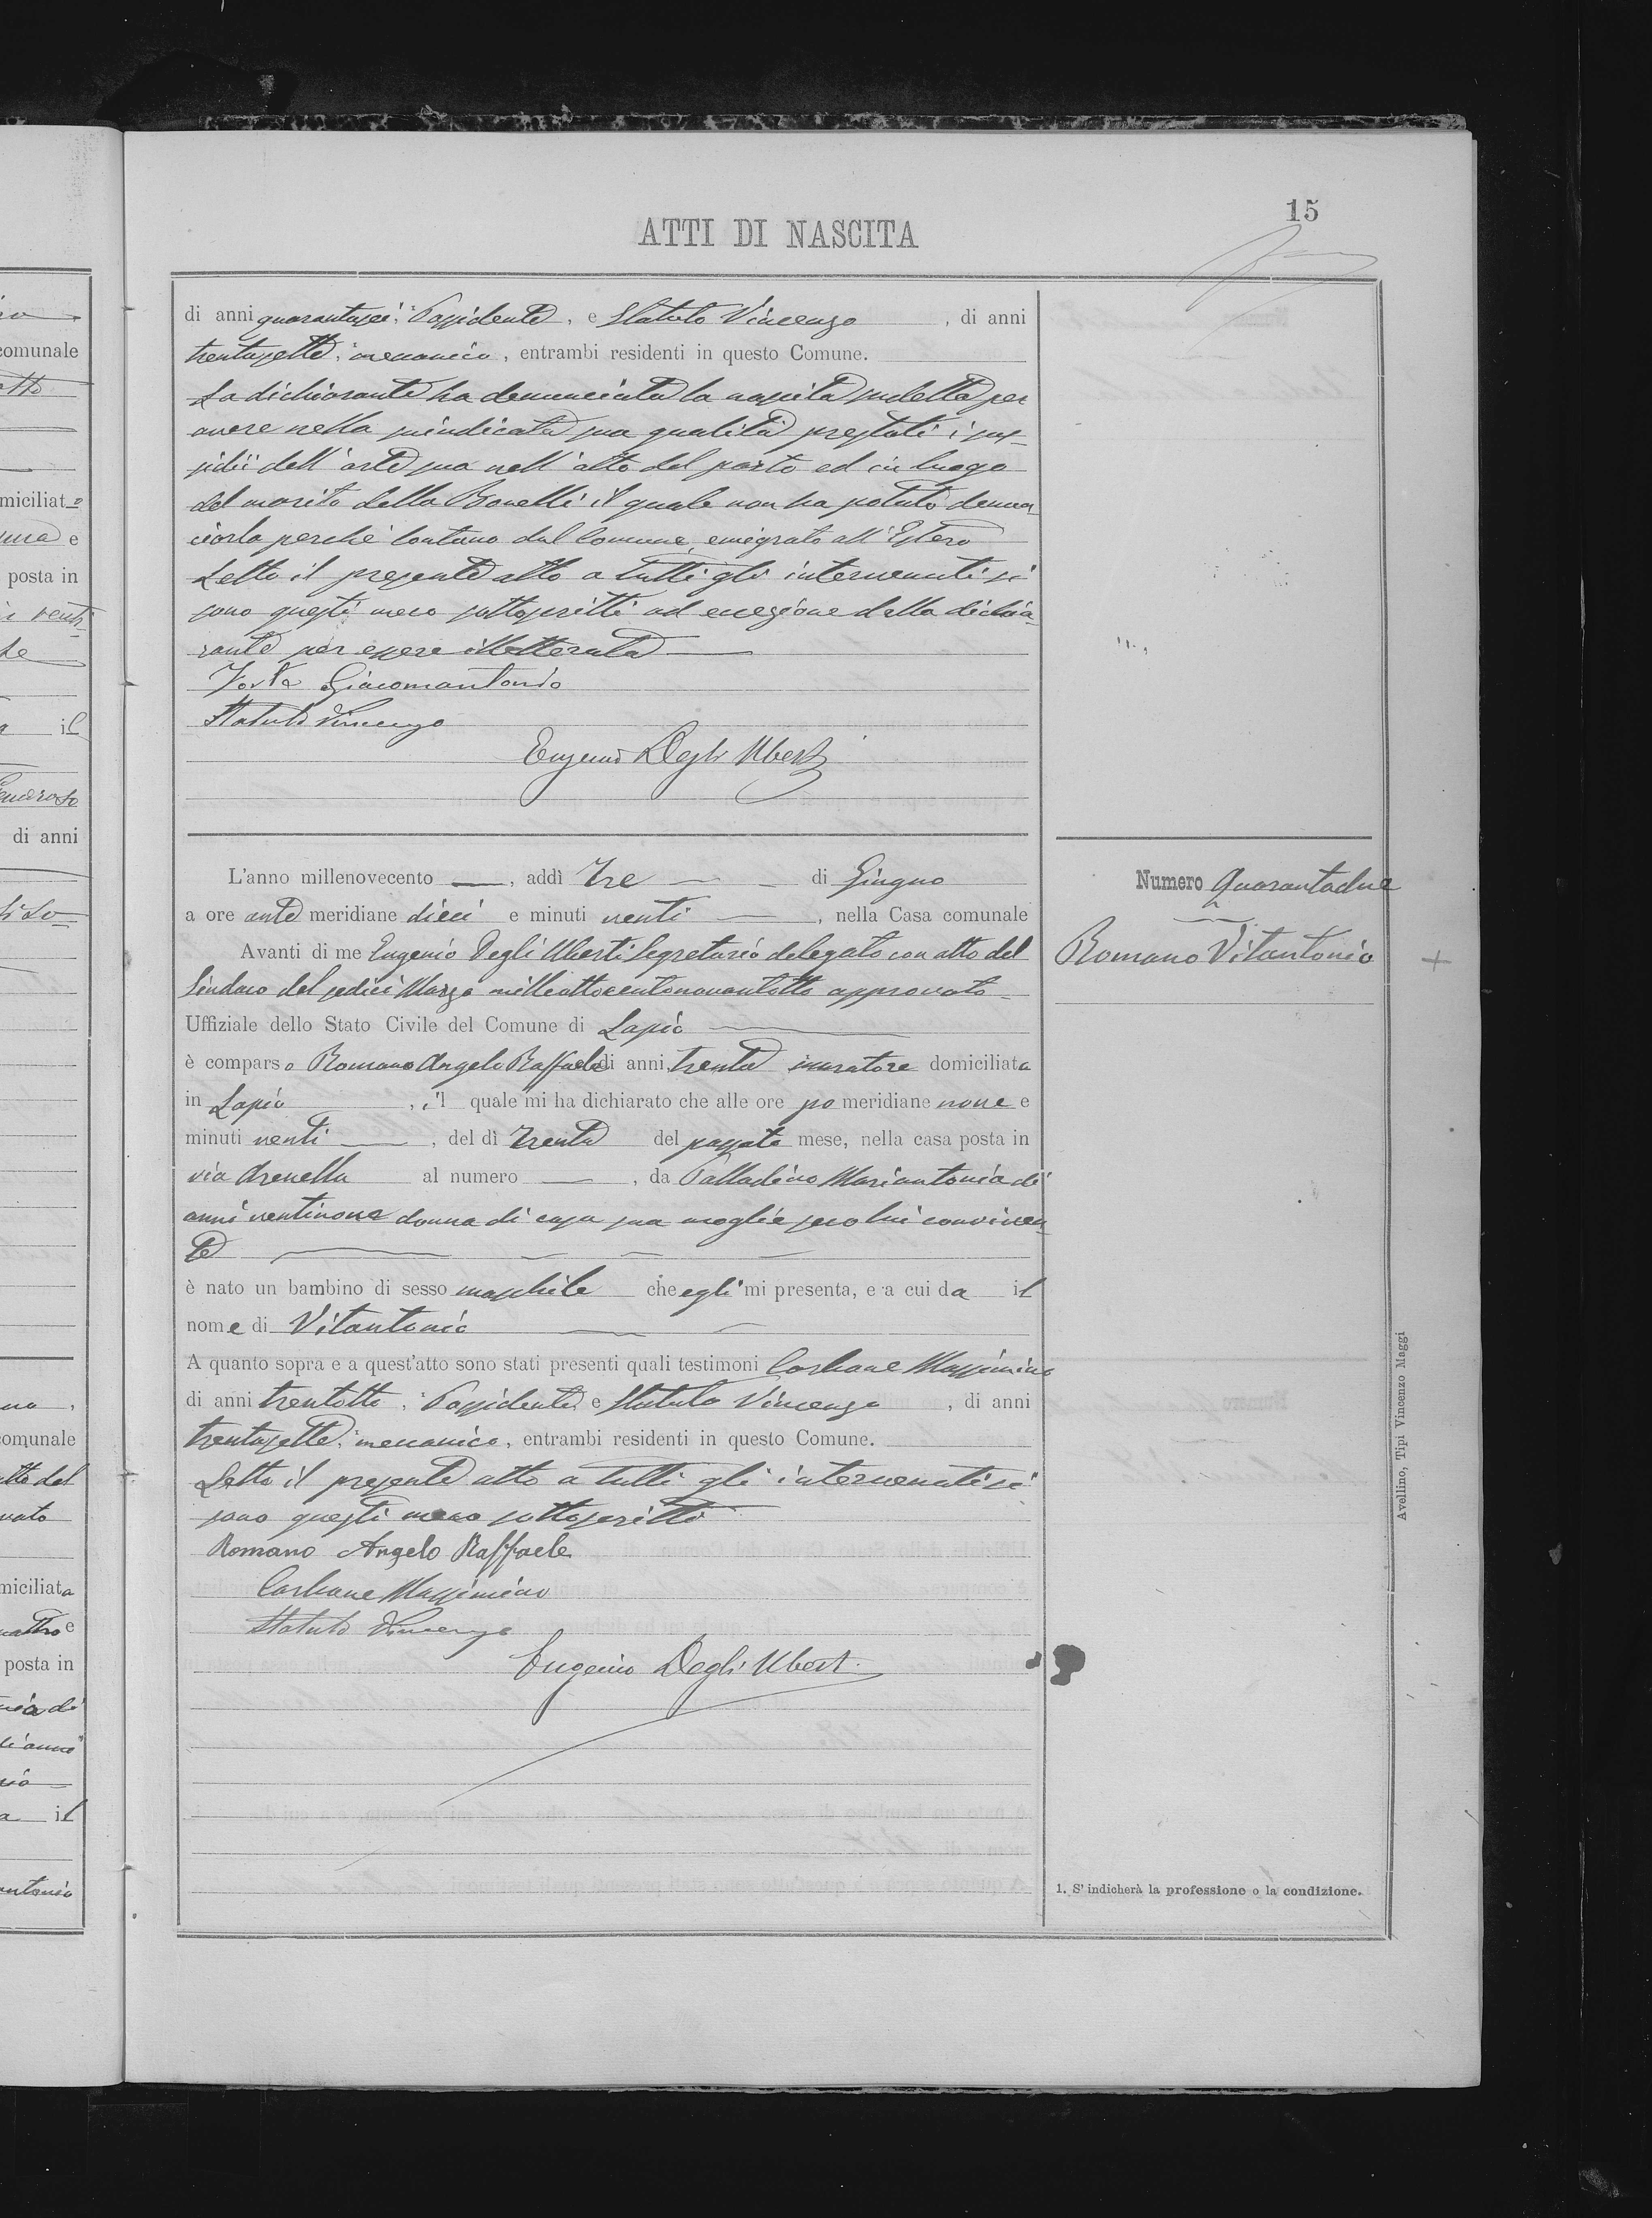 15
ATTI DI NASCITA
di anni quarantasei, Possidente, e Statuto Vincenzo, di anni
trentasette, meccanico, entrambi residenti in questo Comune.
La dichiarante ha denunciata la nascita sudetta per
avere nella suindicata sua qualità prestati i sus-
sidii dell'arte sua nell'atto del parto ed in luogo
del marito della Bonelli il quale non ha potuto denun-
ciarla perchè lontano dal Comune, emigrato all'Estero
Letto il presente atto a tutti gli intervenuti si
sono questi meco sottoscritti ad eccezione della dichia-
rante per essere illetterata
Forte Giacomantonio
Statuto Vincenzo
Eugenio Degli Uberti
L'anno millenovecento —, addì Tre di Giugno
a ore ante meridiane dieci e minuti venti, nella Casa comunale
Avanti di me Eugenio Degli Uberti Segretario delegato con atto del
Sindaco del sedici Marzo milleottocentonovantotto approvato
Uffiziale dello Stato Civile del Comune di Lapio
è comparso Romano Angelo Raffaele di anni trenta muratore domiciliata
in Lapio, il quale mi ha dichiarato che alle ore po meridiane nove e
minuti venti, del dì Trenta del passato mese, nella casa posta in
via Arenella al numero —, da Palladino Mariantonia di
anni ventinove donna di casa sua moglie seco lui conviven-
te
è nato un bambino di sesso maschile che egli mi presenta, e a cui da il
nome di Vitantonio
A quanto sopra e a quest'atto sono stati presenti quali testimoni Carbone Massimino
di anni trentotto, Possidente, e Statuto Vincenzo, di anni
trentasette, meccanico, entrambi residenti in questo Comune.
Letto il presente atto a tutti gli intervenuti si
sono questi meco sottoscritti
Romano Angelo Raffaele
Carbone Massimino
Statuto Vincenzo
Eugenio Degli Uberti
Numero Quarantadue
Romano Vitantonio
+
1. S'indicherà la professione o la condizione.
Avellino, Tipi Vincenzo Maggi
comunale
miciliato
e
posta in
il
di anni
comunale
atto del
miciliata
e
posta in
il